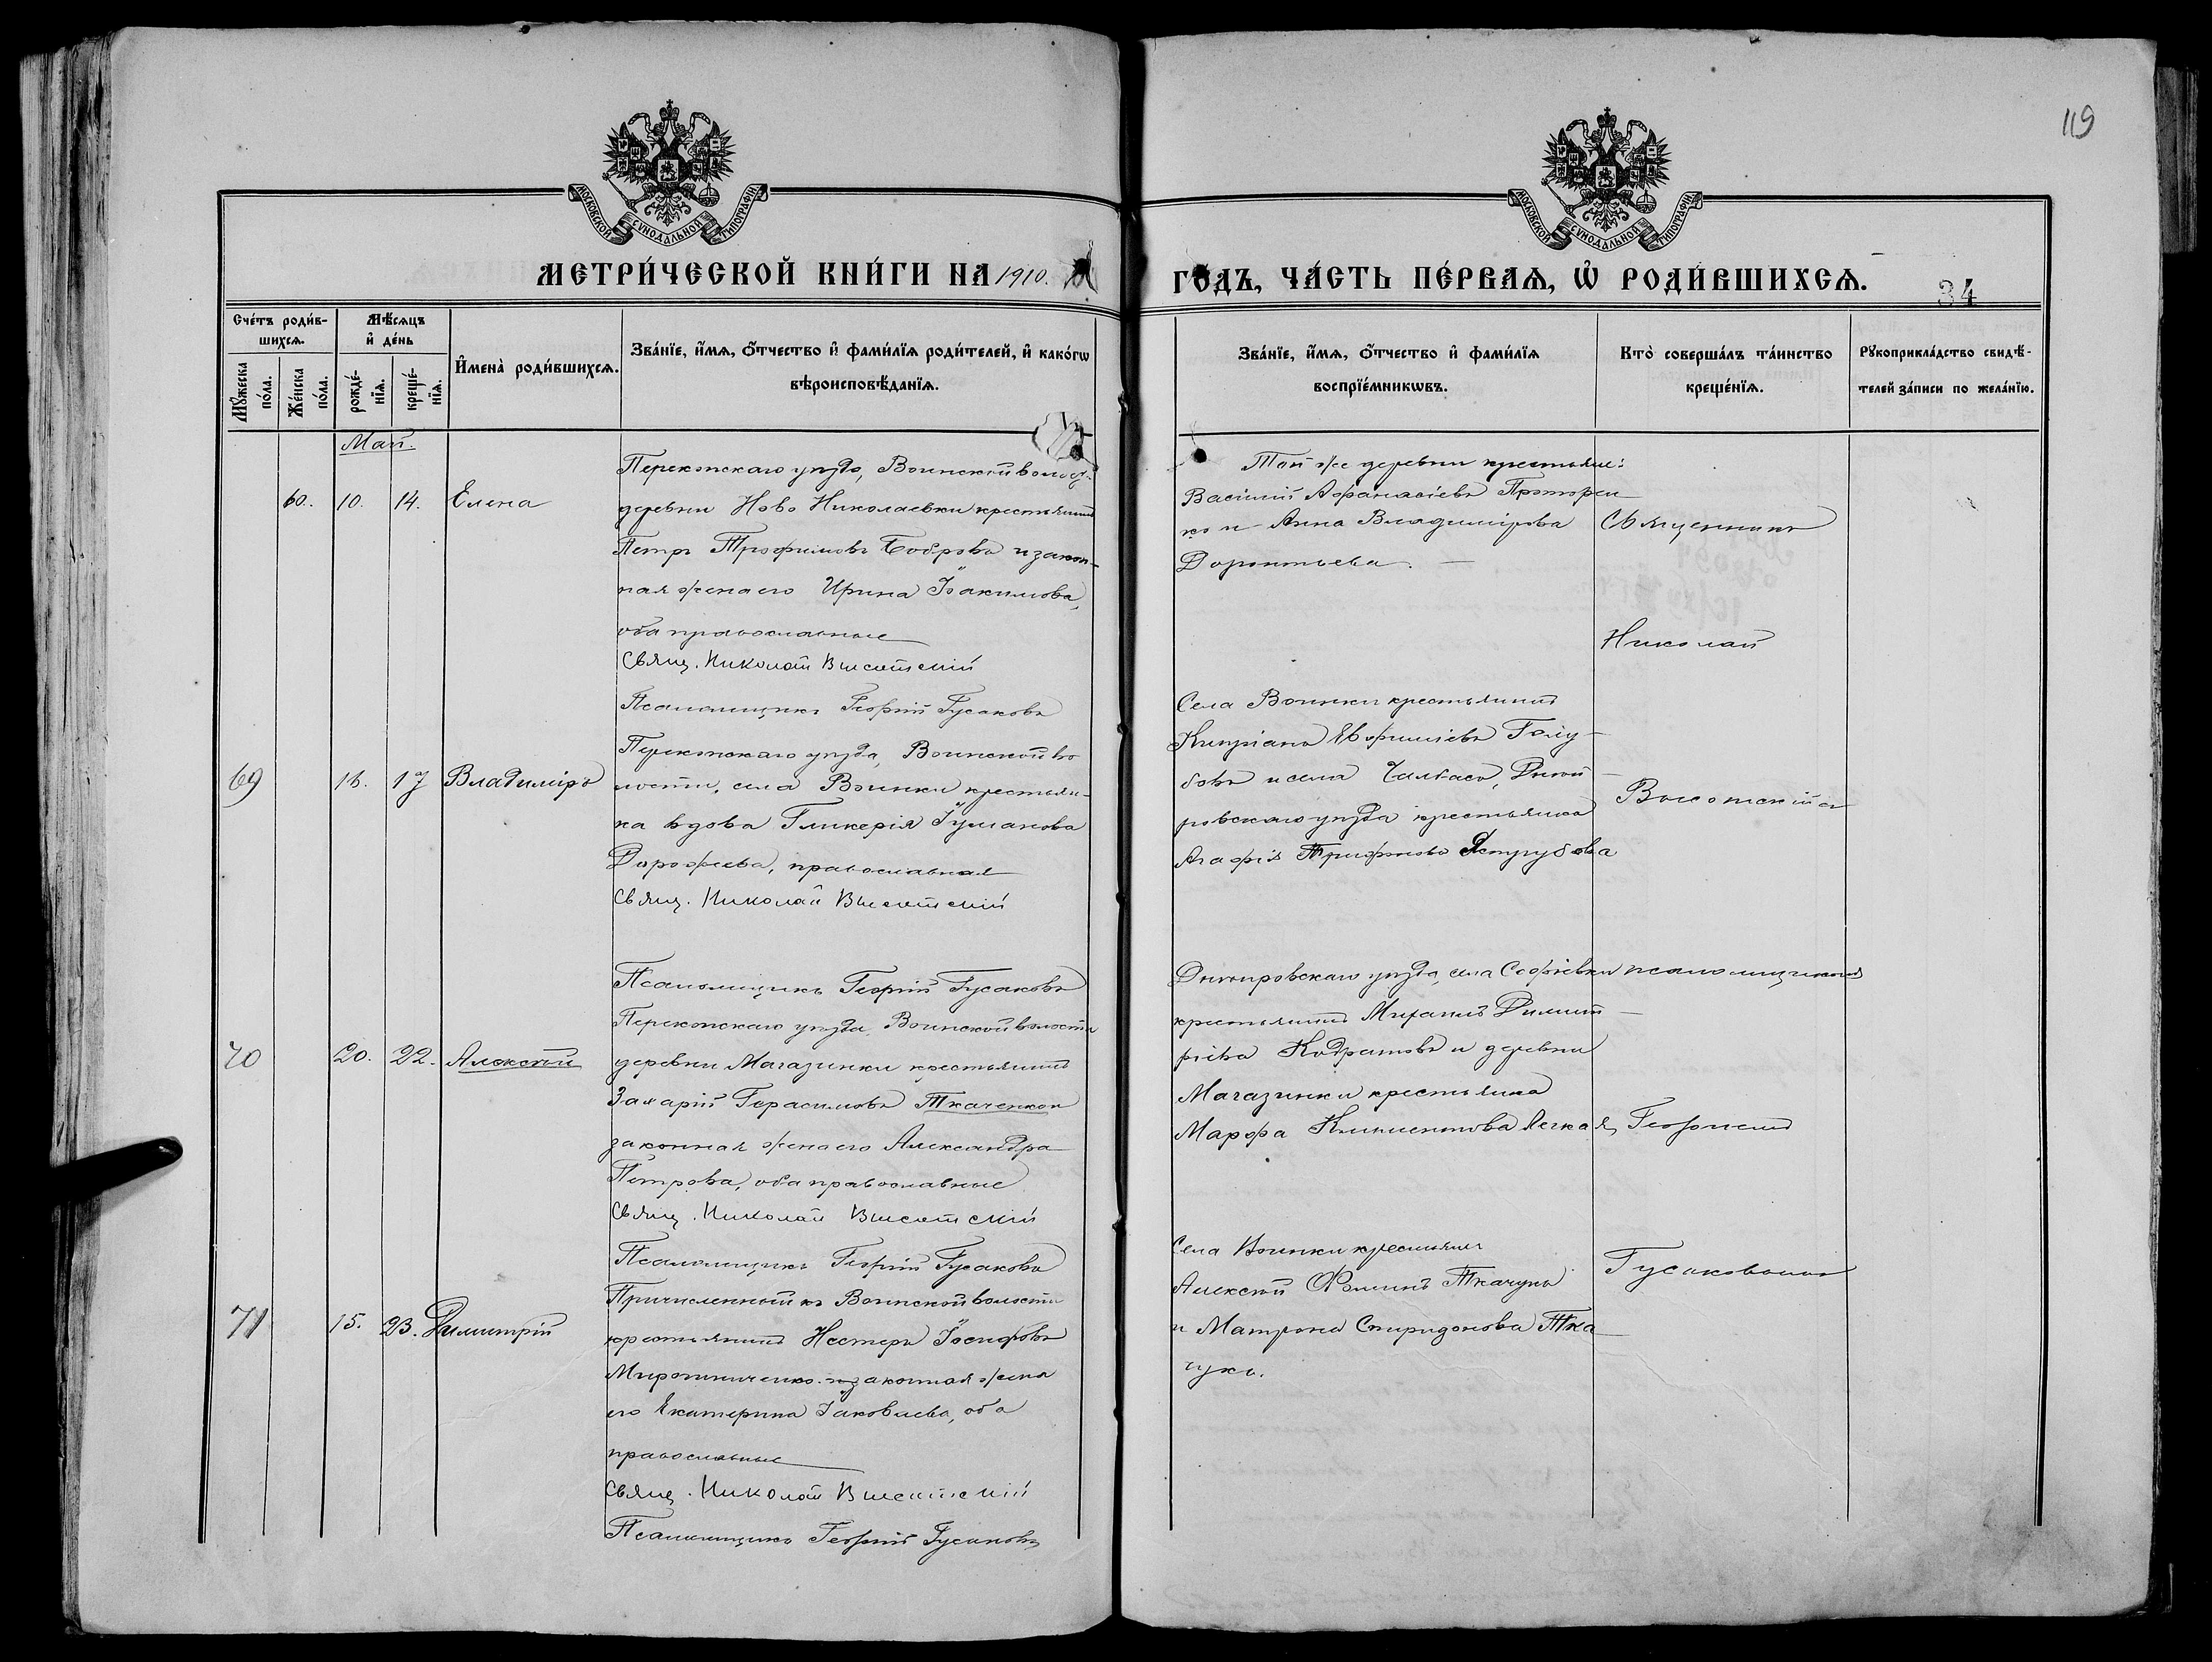 119
МОСКОВСКОЙ СУНОДАЛЬНОЙ ТИПОГРАФІИ
МОСКОВСКОЙ СУНОДАЛЬНОЙ ТИПОГРАФІИ
МЕТРИ́ЧЕСКОЙ КНИ́ГИ НА 1910.
ГО́ДЪ, ЧА́СТЬ ПЕ́РВАѦ, Ѡ҆ РОДИ́ВШИХСѦ.
34
Сче́тъ роди́в-
шихсѧ.
Мꙋжеска по́ла.
Же́нска по́ла.
Мѣ́сѧцъ
и҆ де́нь
рожде́-нїѧ.
креще́-нїѧ.
И҆мена̀ роди́вшихсѧ.
Зва́нїе, и҆́мѧ, ѻ҆́тчество и҆ фами́лїѧ роди́телей, и҆ како́гѡ
вѣроисповѣ́данїѧ.
Зва́нїе, и҆́мѧ, ѻ҆́тчество и҆ фами́лїѧ
воспрїе́мникѡвъ.
Кто̀ соверша́лъ та́инство
креще́нїѧ.
Рꙋкоприкла́дство свидѣ́-
телей за́писи по жела́нїю.
Май.
60. 10. 14. Елена
Перекопскаго уѣзда, Воинской волост.
деревни Ново Николаевки крестьянинъ
Петръ Трофимовъ Бобровъ и закон-
ная жена его Ирина Іоакимова,
оба православные
Свящ. Николай Высотскій
Псаломщикъ Георгій Гусаковъ
Той же деревни крестьяне:
Василій Афанасіевъ
ко и Анна Владимірова
Дорошт
Священникъ
Николай
69 16. 17 Владиміръ
Перекопскаго уѣзда, Воинской во
лости, села Воинки крестьян-
ка вдова Гликерія Іулианова
Дорофѣева, православная
Свящ. Николай Высотскій
Псаломщикъ Георгій Гусаковъ
Села Воинки крестьянинъ
Кипріанъ Евфиміевъ Голу-
бовъ и села Чалбасъ, Днѣп-
ровскаго уѣзда крестьянка
Агафія Трифонова
Высотскій съ
70 20. 22. Алексѣй
Перекопскаго уѣзда, Воинской волости
деревни Магазинки крестьянинъ
Захарій Герасимовъ Ткаченко и
законная жена его Александра
Петрова, оба православные
Свящ. Николай Высотскій
Псаломщикъ Георгій Гусаковъ
Днѣпровскаго уѣзда, села Софіевки
крестьянинъ Михаилъ Димит-
ріевъ Кодратовъ и деревни
Магазинки крестьянка
Марфа Климентова Легкая
псаломщикомъ
Георгіемъ
71 15. 23. Димитрій
Причисленный къ Воинской волости
крестьянинъ Несторъ Іосифовъ
Мирошниченко и законная жена
его Екатерина Іаковлева, оба
православные
Свящ. Николай Высотскій
Псаломщикъ Георгій Гусаковъ
Села Воинки крестьяне
Алексѣй Ѳоминъ Ткачукъ
и Матрона Спиридонова Тка
чукъ.
Гусаковымъ